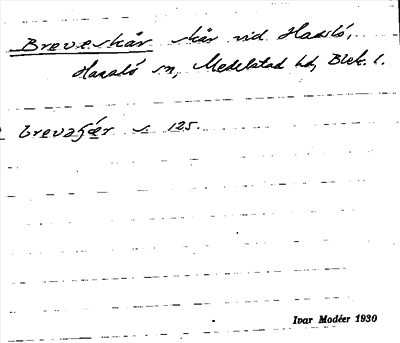 Breveskär skär vid Hasslö,
Hasslö sn, Medelstad hd, Blek. l.
brevaʃær s. 125.
Ivar Modéer 1930